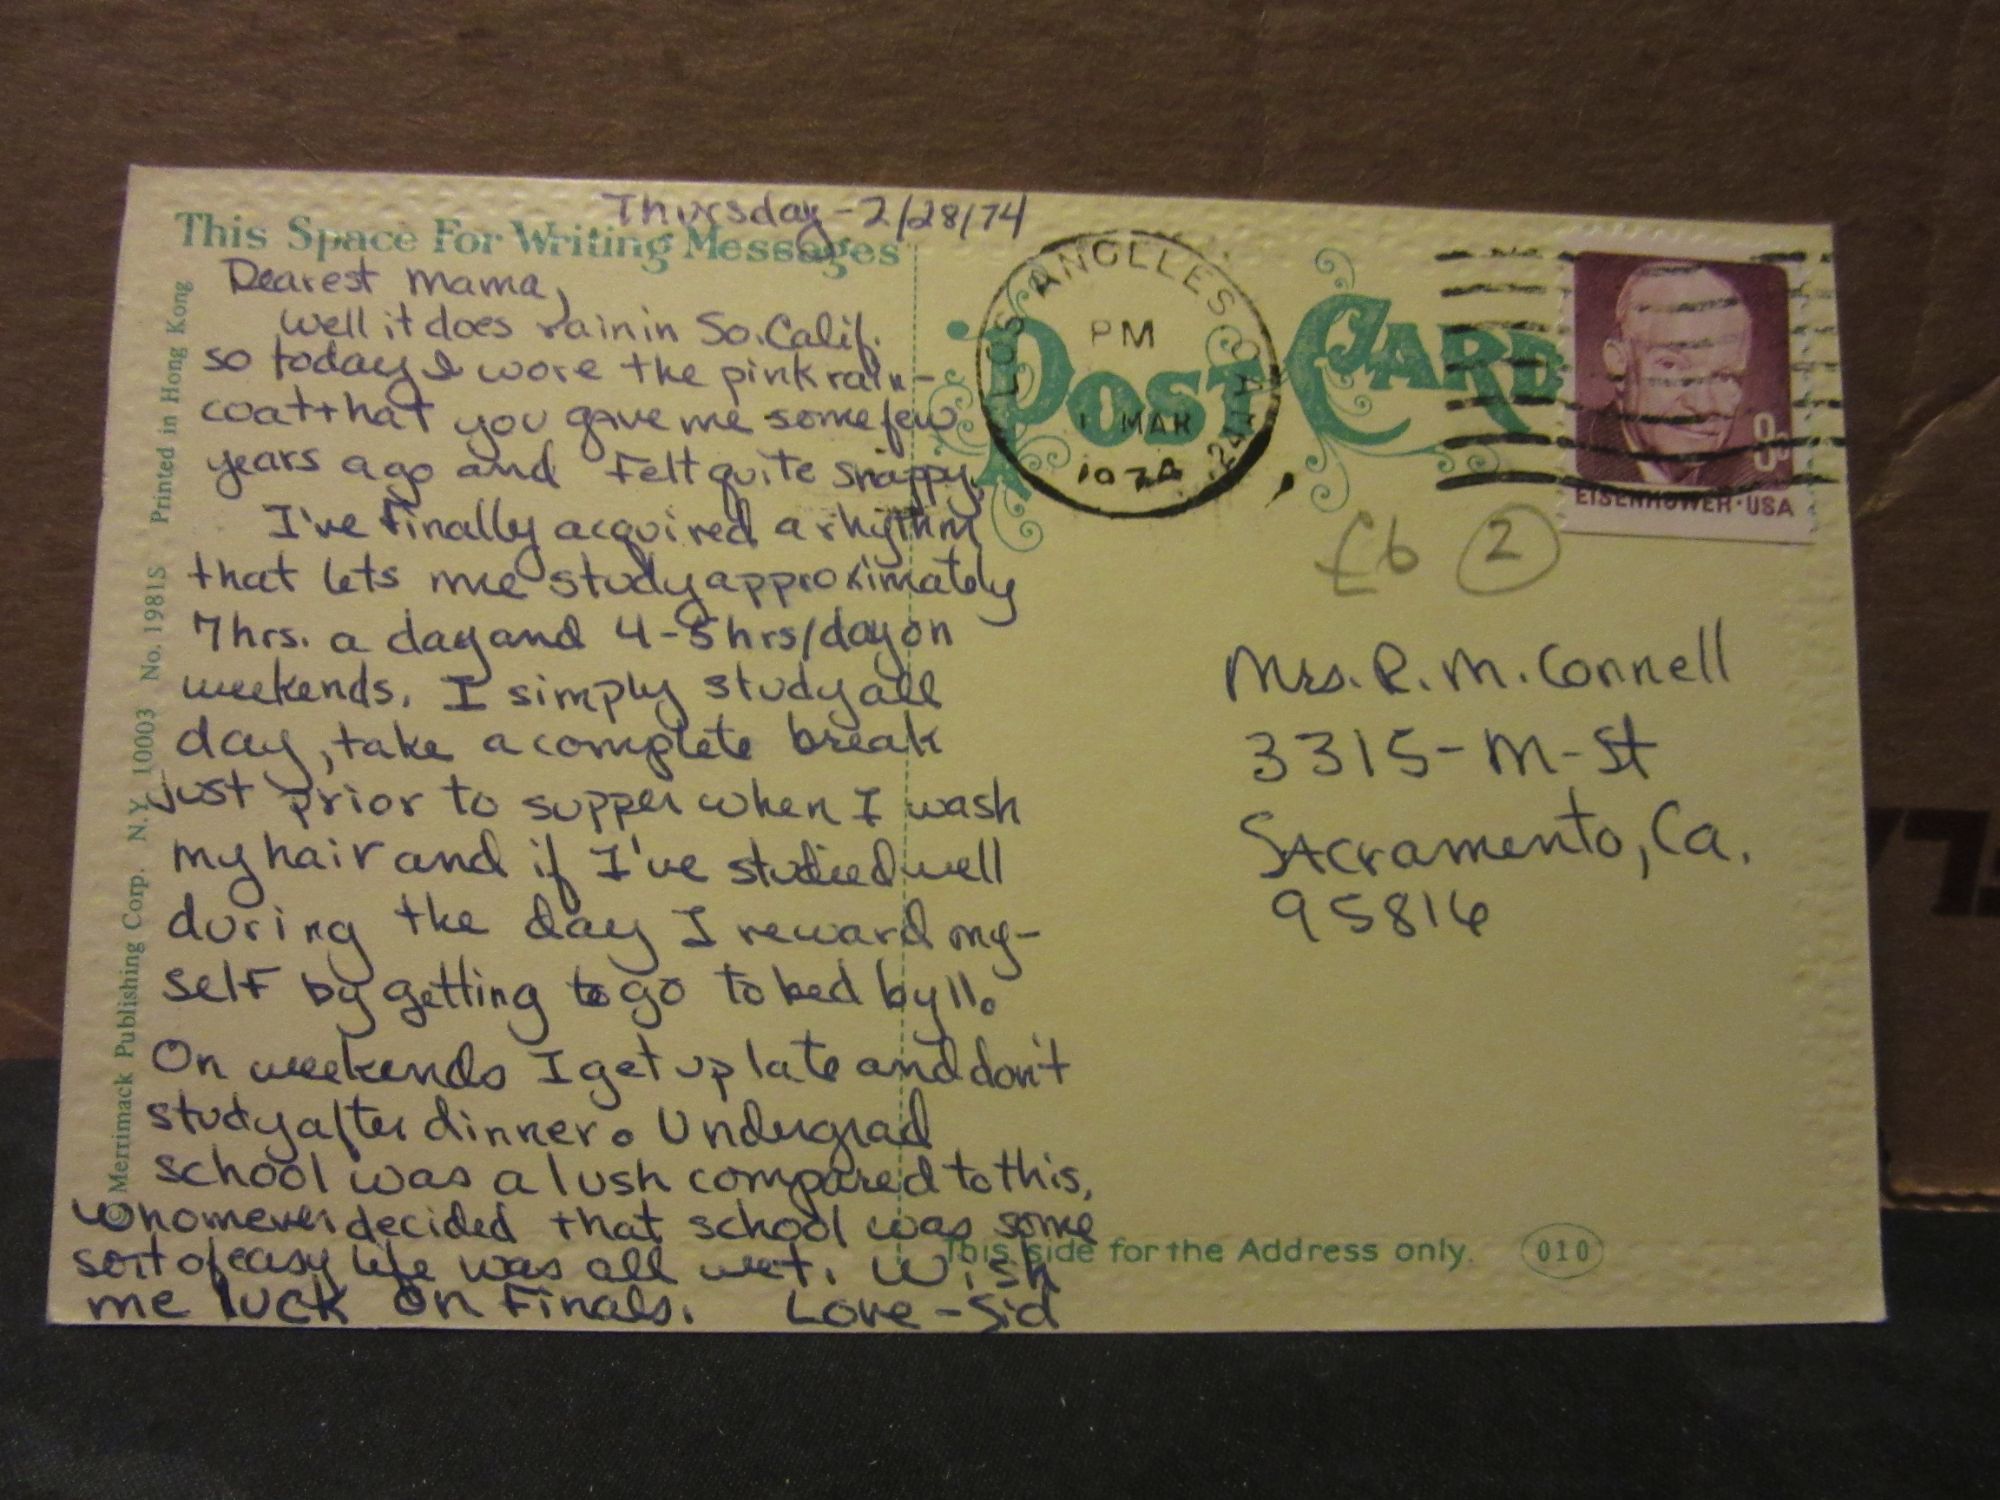 Thursday - 2/28/74
This Space For Writing Messages
Dearest Mama,
Well it does rain in So. Calif.
so today I wore the pink rain-
coat that you gave me some few
years ago and felt quite snappy.
I've finally acquired a rhythm
that lets me study approximately
7 hrs. a day and 4-5 hrs/day on
weekends. I simply study all
day, take a complete break
just prior to supper when I wash
my hair and if I've studied well
during the day I reward my-
self by getting to go to bed by 11.
On weekends I get up late and don't
study after dinner. Undergrad
school was a lush compared to this,
whomever decided that school was some
sort of easy life was all wet. Wish
me luck on Finals. Love - Sid
© Merrimack Publishing Corp. N.Y. 10003 No. 1981S Printed in Hong Kong
POST CARD
LOS ANGELES
PM
1 MAR
1974
EISENHOWER·USA
£6 2
Mrs. R. M. Connell
3315-M-St
Sacramento, Ca.
95816
This side for the Address only. 010